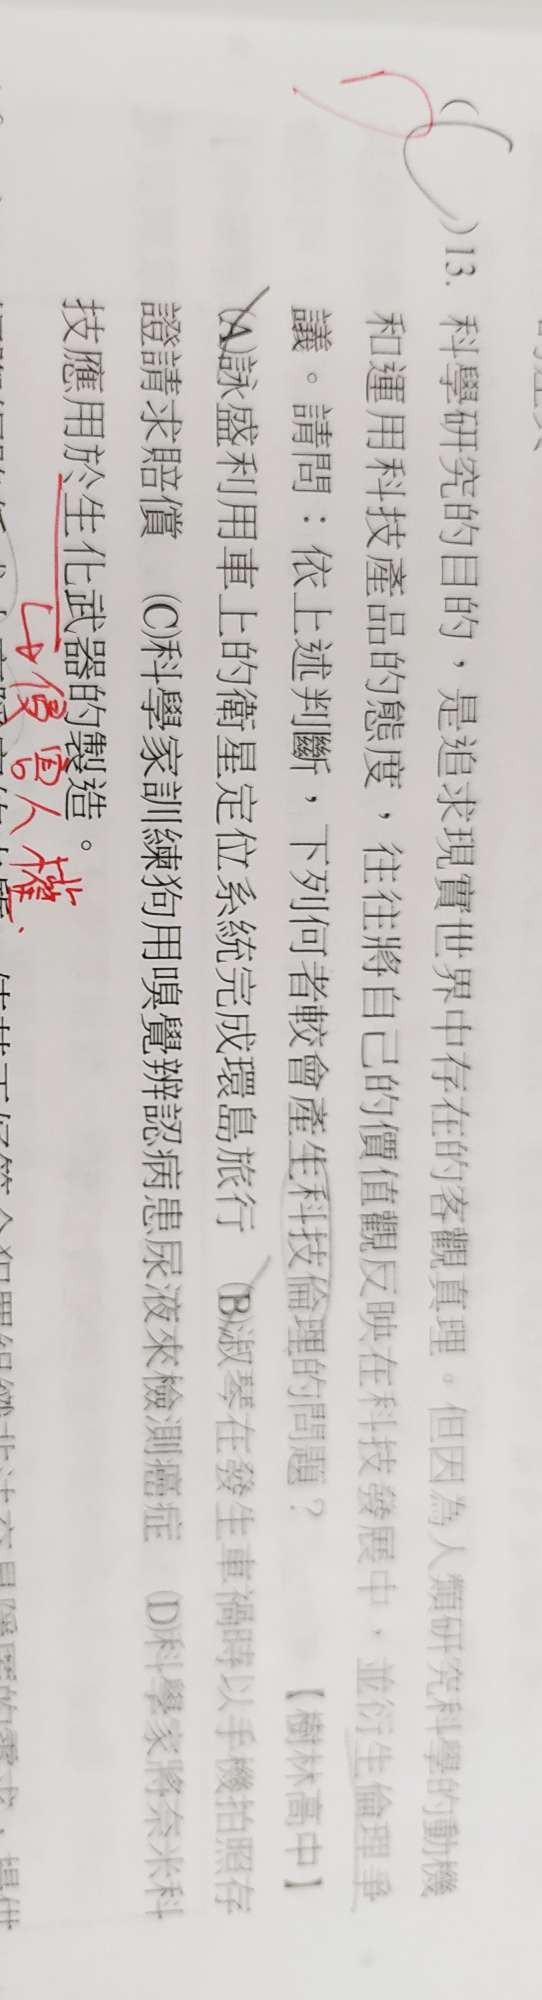 (C)13. 科學研究的目的，是追求現實世界中存在的客觀真理。但因為人類研究科學的動機
和運用科技產品的態度，往往將自己的價值觀反映在科技發展中，並衍生倫理爭
議。請問：依上述判斷，下列何者較會產生科技倫理的問題？【樹林高中】
(A)詠盛利用車上的衛星定位系統完成環島旅行 (B)淑琴在發生車禍時以手機拍照存
證請求賠償 (C)科學家訓練狗用嗅覺辨認病患尿液來檢測癌症 (D)科學家將奈米科
技應用於生化武器的製造。
↳侵害人權